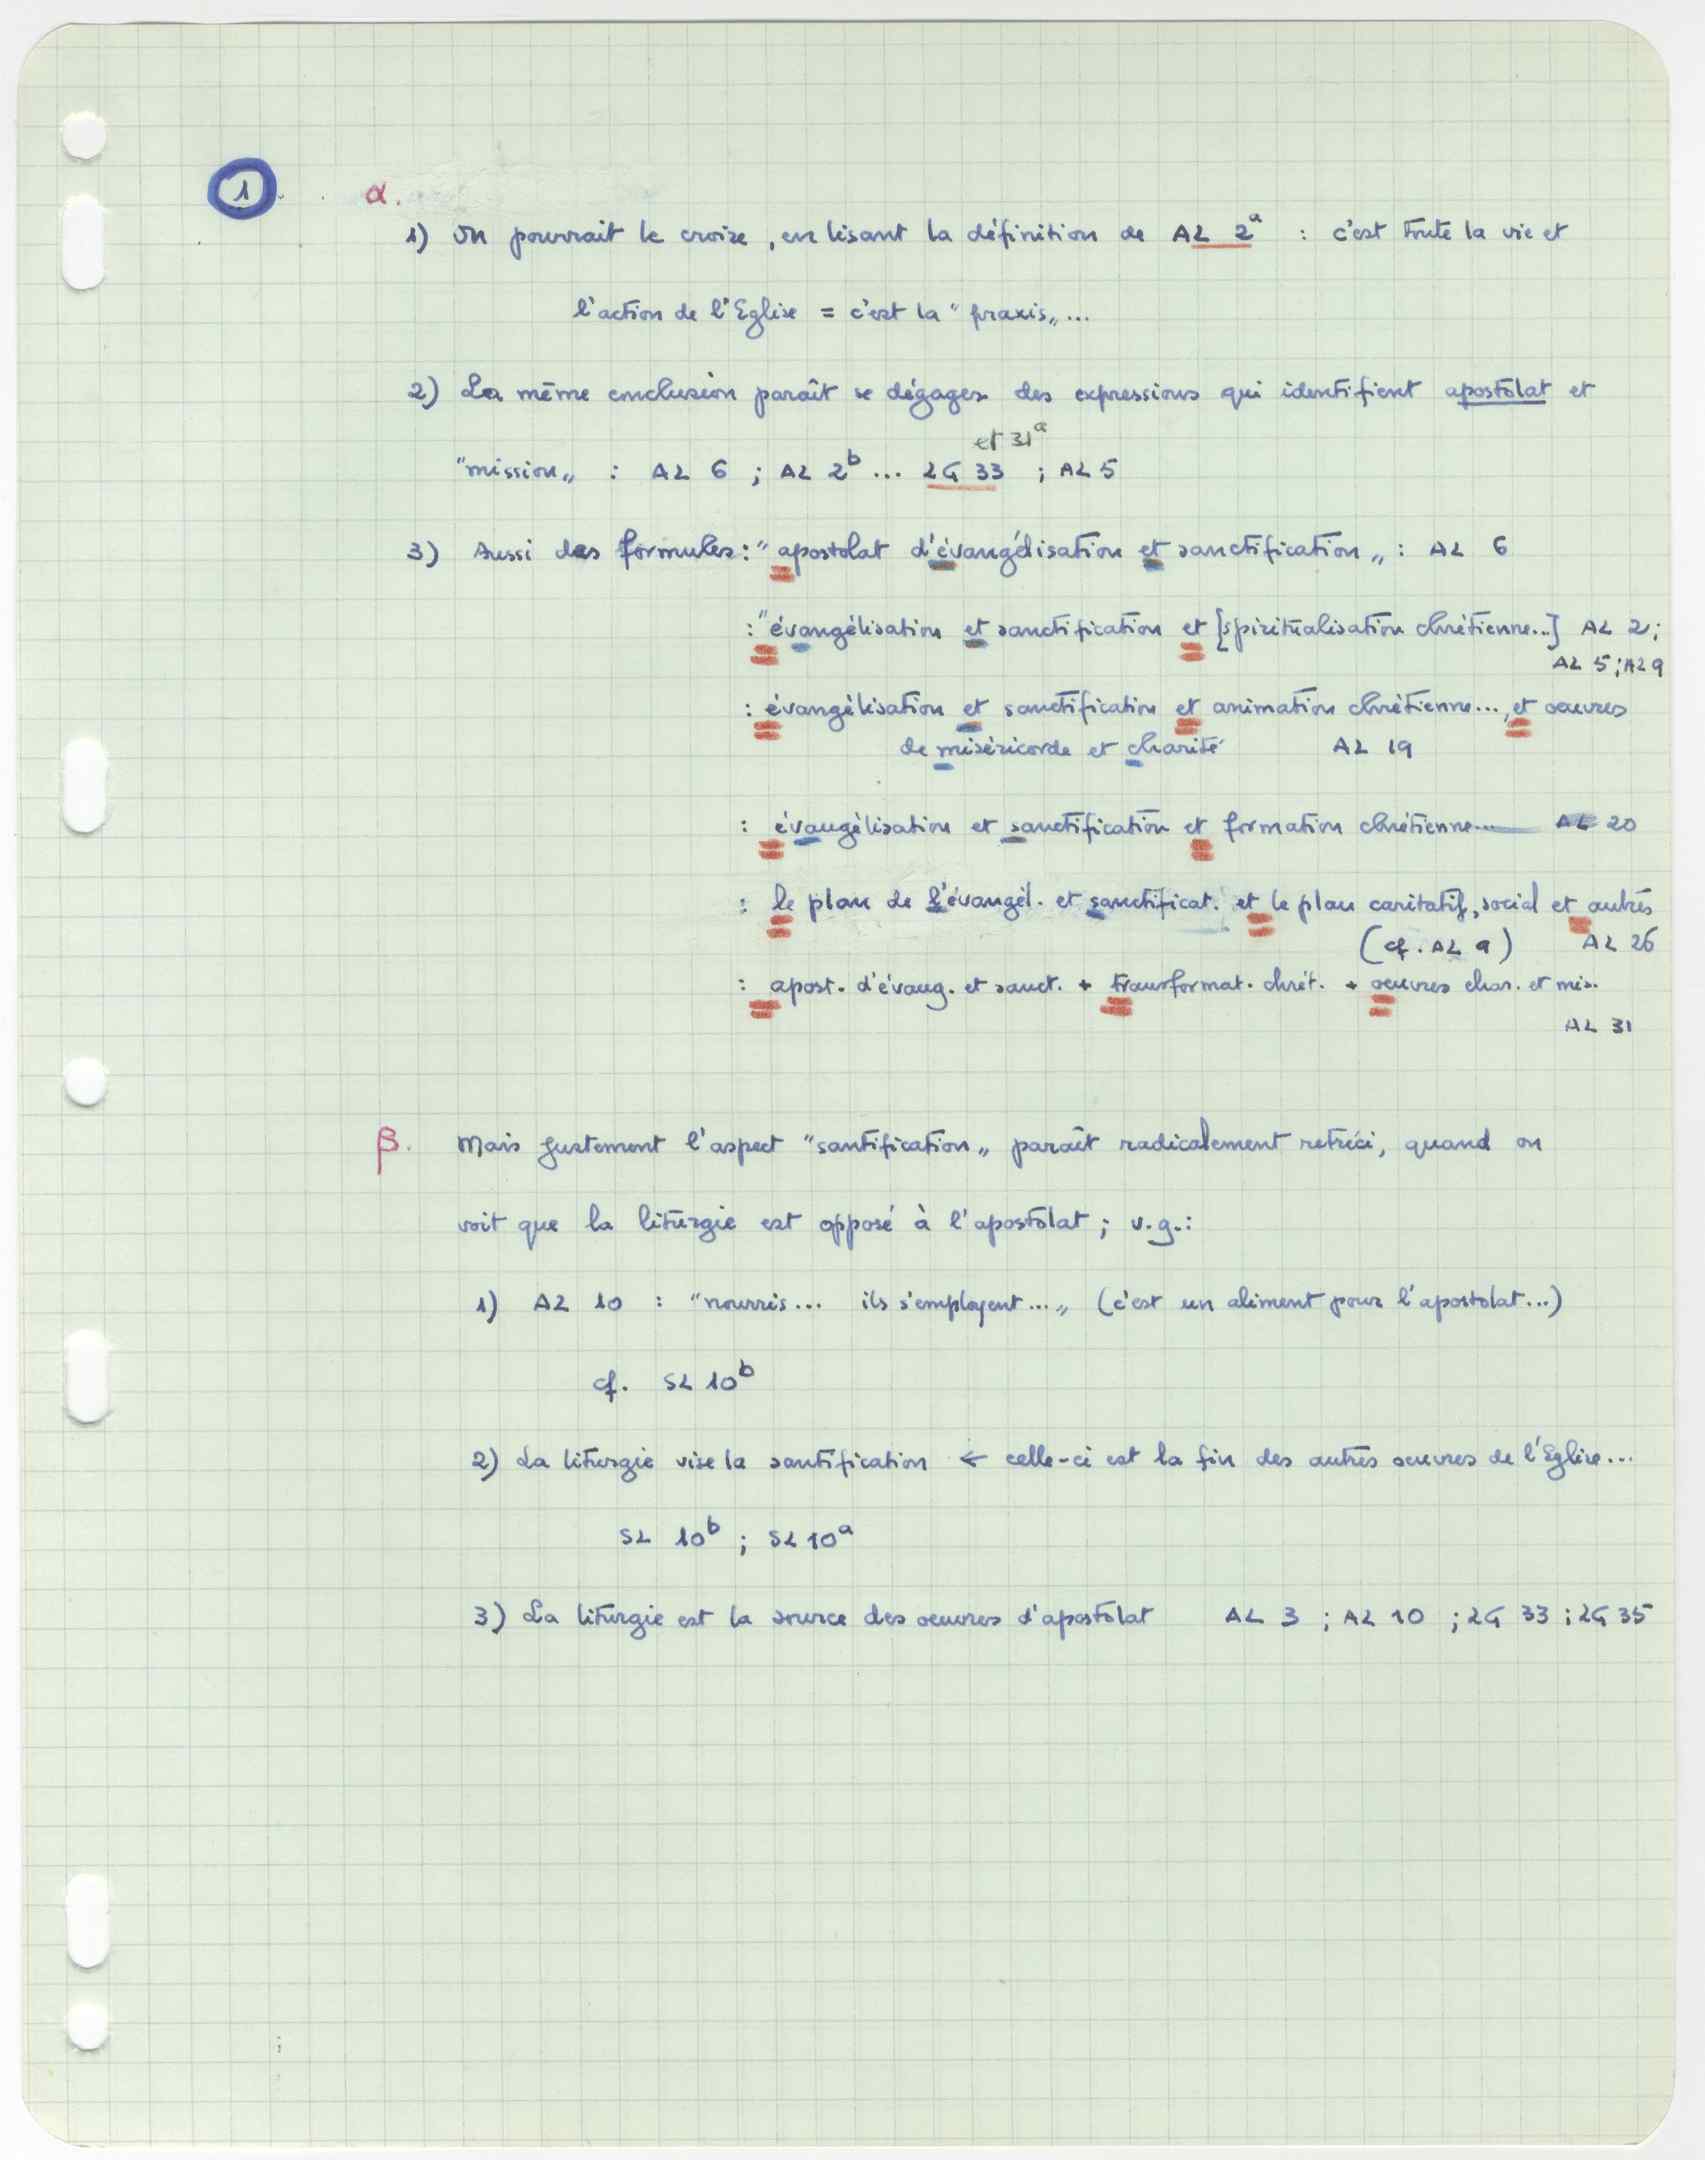 1 . α.
1) On pourrait le croire, en lisant la définition de AL 2ᵃ : c'est toute la vie et
l'action de l'Eglise = c'est la "praxis„...
2) La même conclusion paraît se dégager des expressions qui identifient apostolat et
et 31ᵃ
"mission„ : AL 6 ; AL 2ᵇ ... LG 33 ; AL 5
3) Aussi des formules: "apostolat d'évangélisation et sanctification„ : AL 6
:"évangélisation et sanctification et [spiritualisation chrétienne...] AL 2;
AL 5; AL 9
: évangélisation et sanctification et animation chrétienne..., et oeuvres
de miséricorde et charité AL 19
: évangélisation et sanctification et formation chrétienne... AL 20
: le plan de l'évangél. et sanctificat. et le plan caritatif, social et autres
(cf. AL 9) AL 26
: apost. d'évang. et sanct. + transformat. chrét. + oeuvres char. et mis.
AL 31
β. Mais justement l'aspect "santification„ paraît radicalement retréci, quand on
voit que la liturgie est opposé à l'apostolat ; v.g.:
1) AL 10 : "nourris... ils s'employent...„ (c'est un aliment pour l'apostolat...)
cf. SL 10ᵇ
2) La liturgie vise la santification ← celle-ci est la fin des autres oeuvres de l'Eglise...
SL 10ᵇ ; SL 10ᵃ
3) La liturgie est la source des oeuvres d'apostolat AL 3 ; AL 10 ; LG 33 ; LG 35